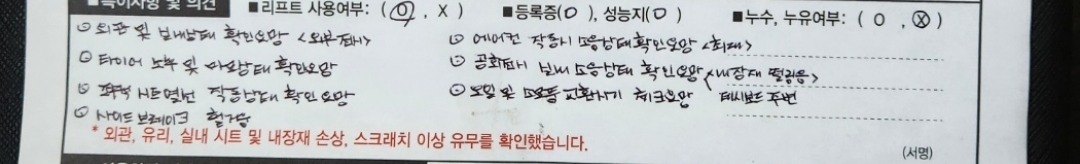 ■특이사항 및 의견 ■리프트 사용여부: ( O , X ) ■등록증( O ), 성능지( O ) ■누수, 누유여부: ( O , X )
외관 및 실내상태 확인요망
타이어 노후 및 마모상태 확인요망
시트열선 작동상태 확인요망
사이드 브레이크 헐거움
에어컨 작동시 소음상태확인요망 <최대>
공회전시 실내 소음상태 확인요망 <내장재 떨림음>
오일 및 소모품 교환시기 체크요망
대시보드 주변
* 외관, 유리, 실내 시트 및 내장재 손상, 스크래치 이상 유무를 확인했습니다.
(서명)